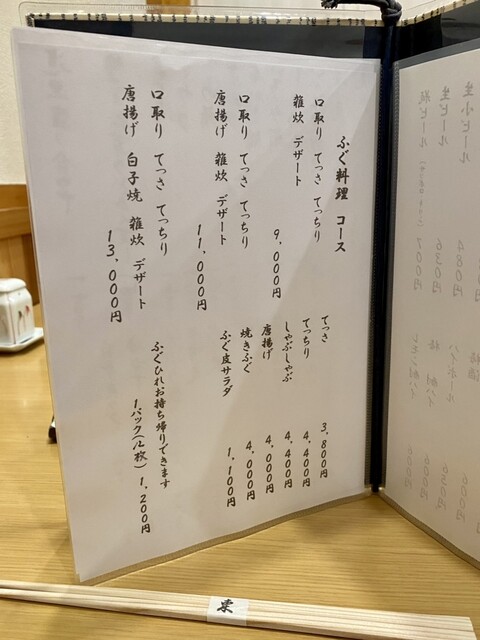 ふぐ料理 コース
口取り てっさ てっちり
雑炊 デザート
9,000円
口取り てっさ てっちり
唐揚げ 雑炊 デザート
11,000円
口取り てっさ てっちり
唐揚げ 白子焼 雑炊 デザート
13,000円
てっさ 3,800円
てっちり 4,400円
しゃぶしゃぶ 4,400円
唐揚げ 4,000円
焼きふぐ 4,000円
ふぐ皮サラダ 1,100円
ふぐひれお持ち帰りできます
1パック(12枚) 1,200円
生小ビール 480円
生ビール 630円
瓶ビール 700円
ハイボール
レモン酎ハイ 600円